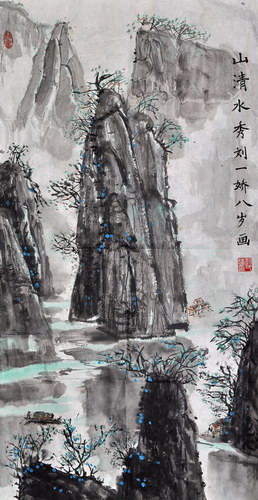 山清水秀刘一娇八岁画